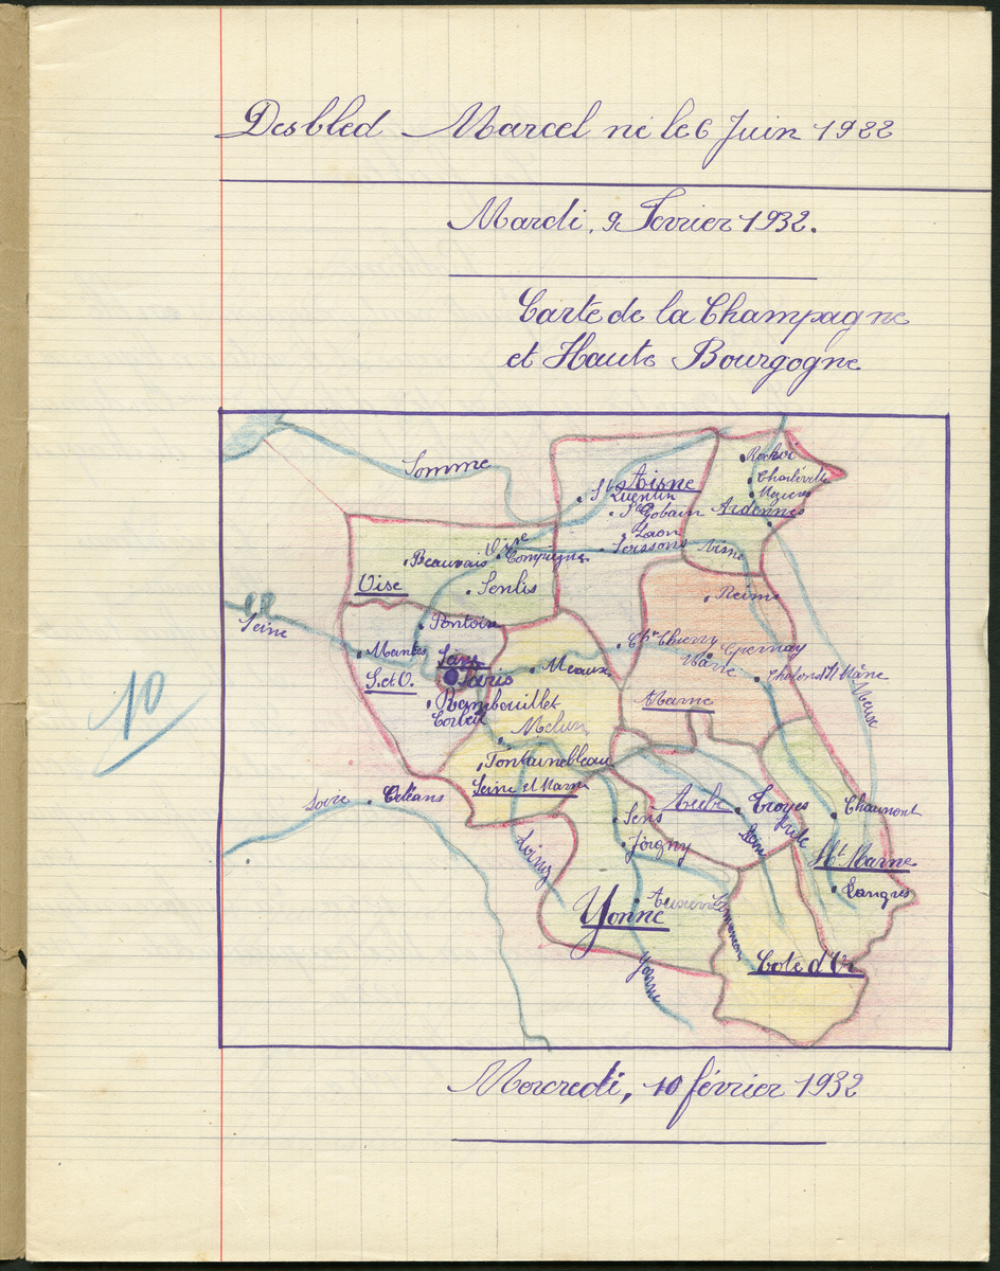 Desbled Marcel né le 6 Juin 1922
Mardi, 9 Fevrier 1932.
Carte de la Champagne
et Haute Bourgogne
Somme
Rocroi
Charleville
Mezieres
Ardennes
Aisne
St Quentin
St Gobain
Laon
Soissons
Aisne
Oise
Compiegne
Beauvais
Oise
Senlis
Reims
Seine
Pontoise
Mantes
S.et O.
Paris
Rambouillet
Corbeil
Meaux
Chau Thierry
Marne
Epernay
Chalons S/ Mâne
Meuse
Marne
Melun
Fontainebleau
Seine et Marne
Loire
Orléans
10
Loing
Sens
Joigny
Aube
Troyes
Aube
Seine
Chaumont
Hte Marne
Langres
Yonne
Auxerre
Armancon
Yonne
Cote d'Or
Mercredi, 10 février 1932